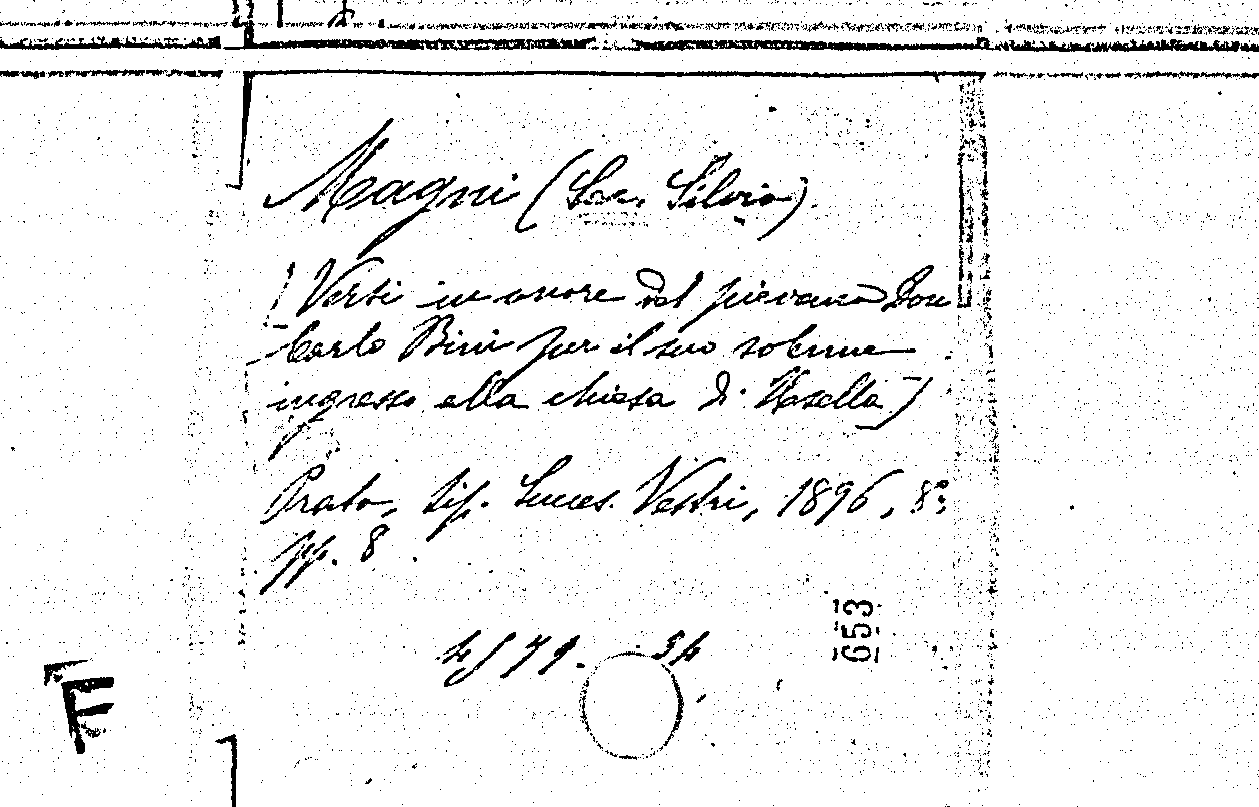 Magni (Sac. Silvio).
[Versi in onore del pievano Don
Carlo Bini per il suo solenne
ingresso alla chiesa di]
Prato, tip. Succes. Vestri, 1896, 8º,
pp. 8
34
653
F